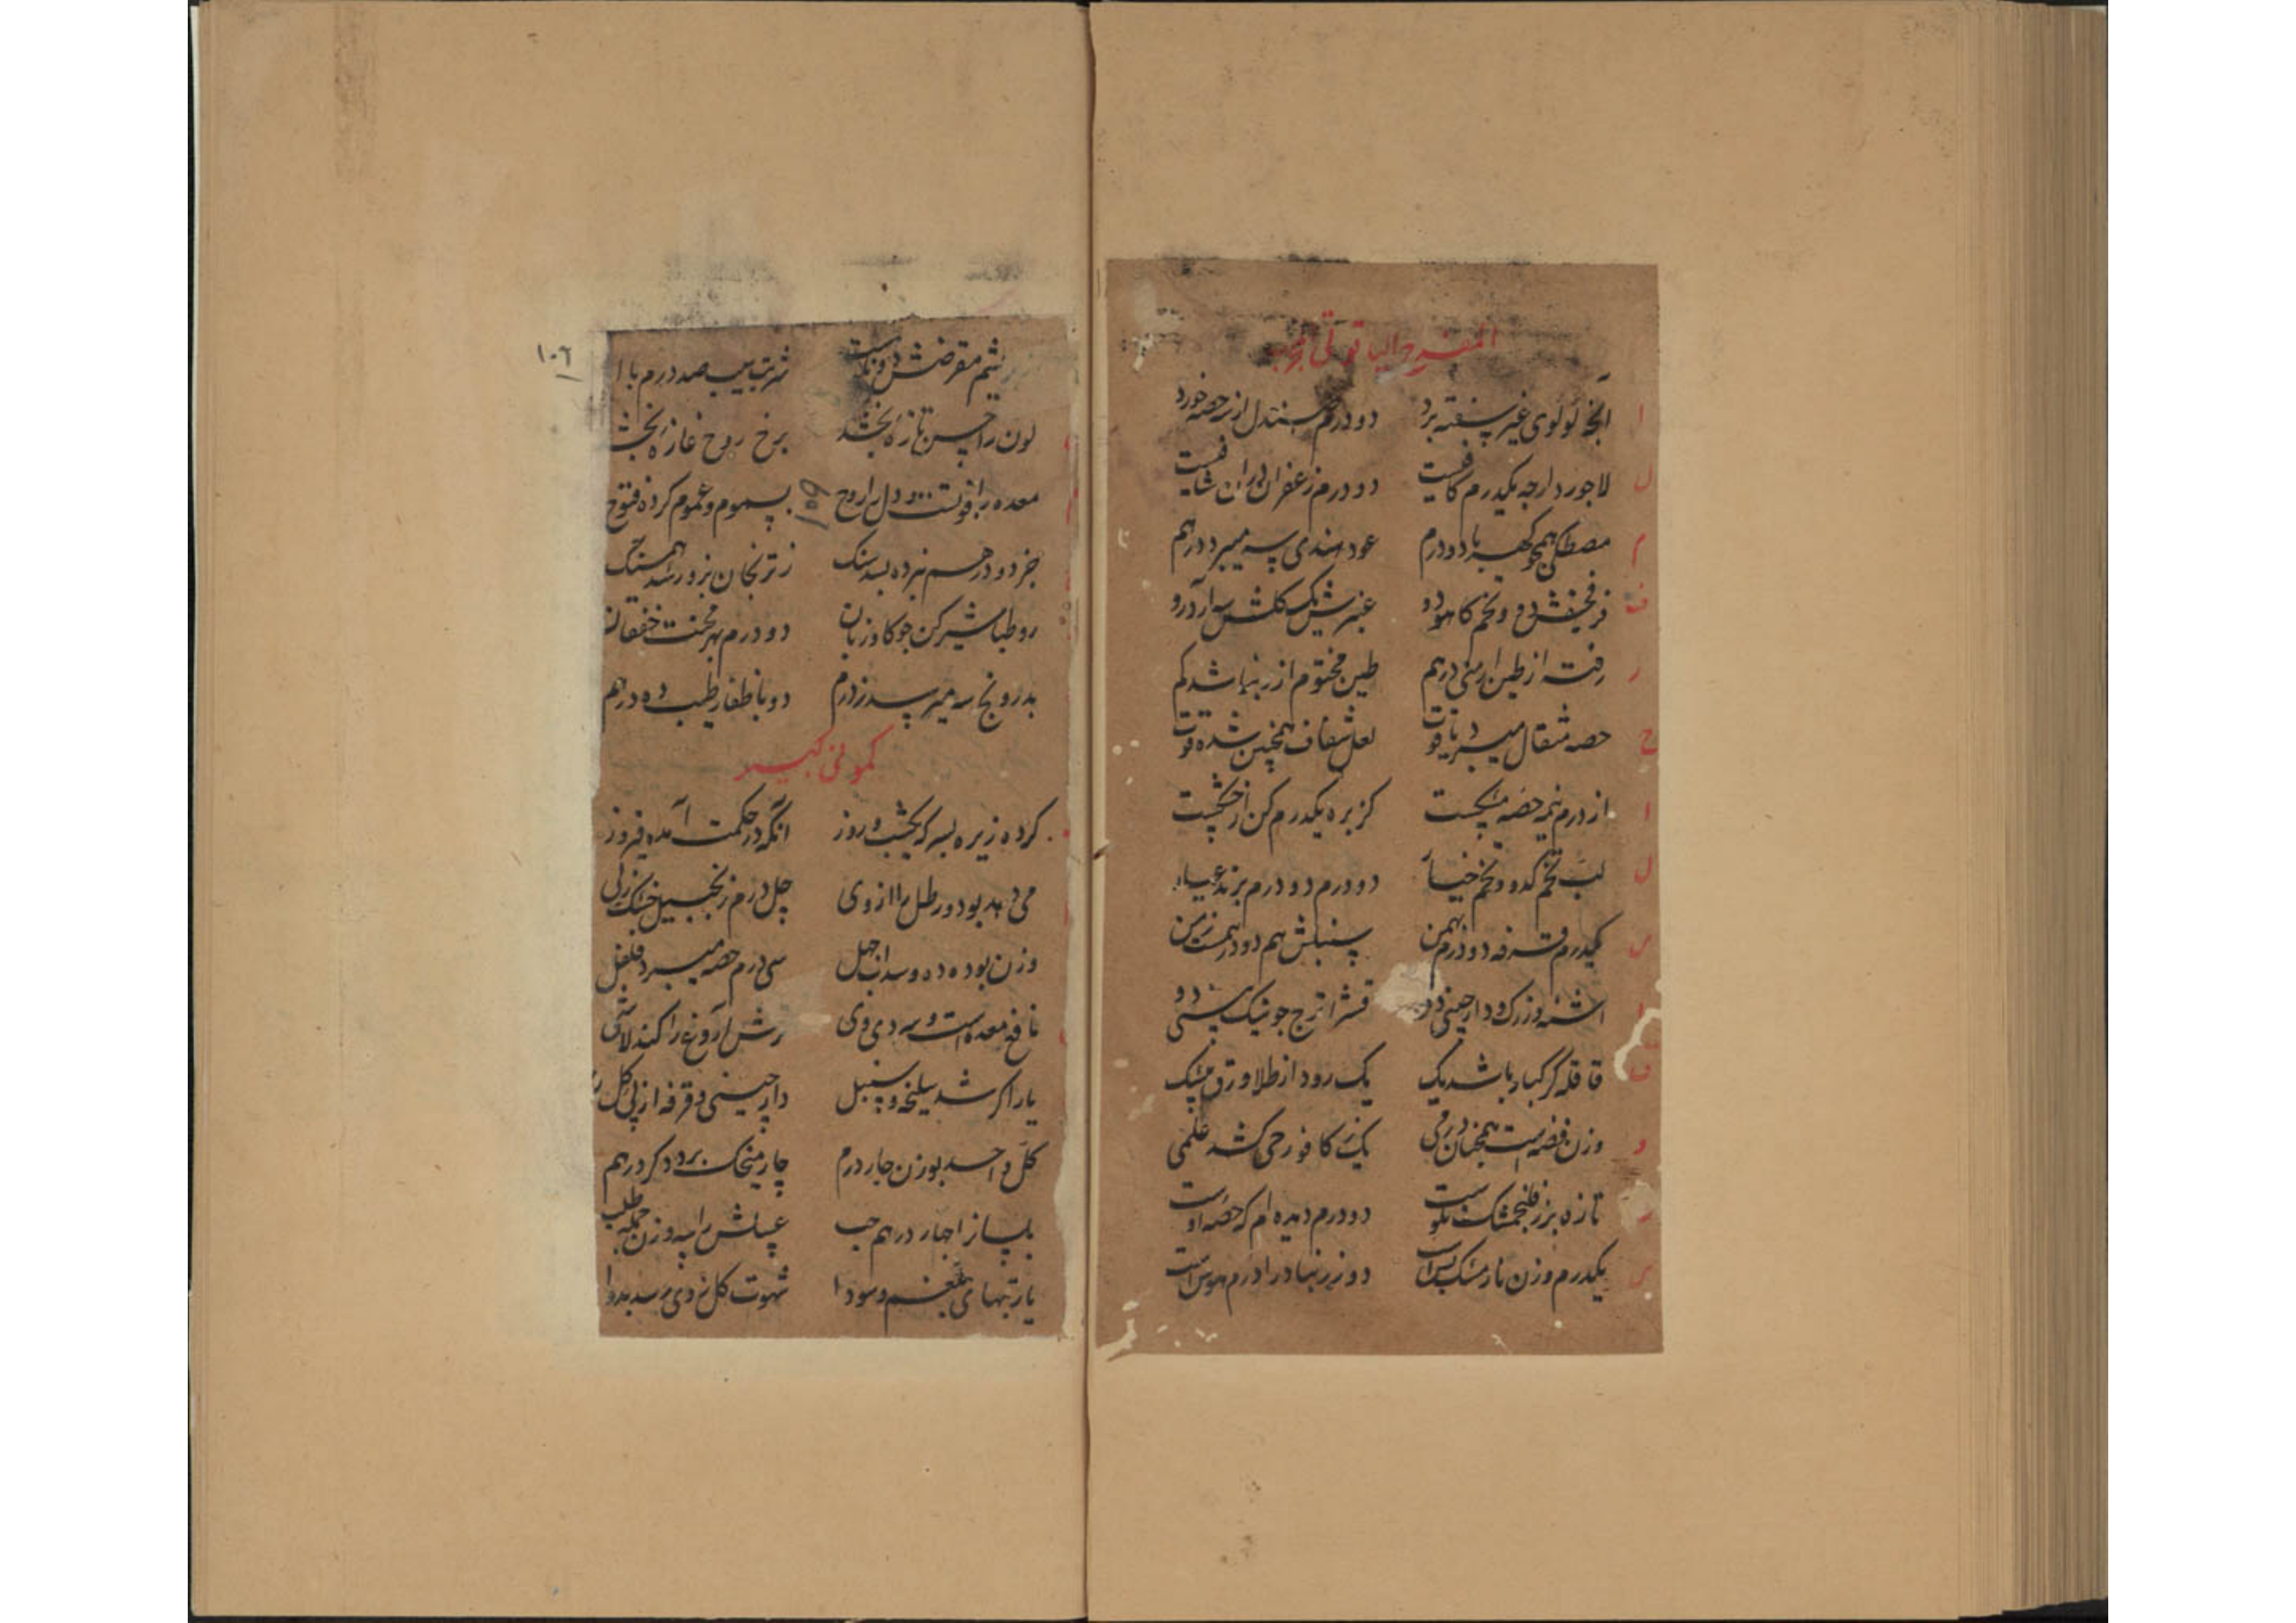 المفرح الیاقوتی
انچه لولوی غیر سفته برد دو درم صندل از سه حصه خورد
لاجورد ارچه یکدرم کافیست دو درم زعفران دران شافیست
مصطکی همچو کهربا دو درم عود هندی سه میبرد درهم
فرنجمشش دو و تخم کاهو دو عنبرش یک گلشن سه آرد رو
رفته از طین ارمنی درهم طین مختوم ازین نباشد کم
حصه مثقال میبرد یاقوت لعل شفاف همچنین شده قوت
از درم نیمه حصه کزبره یکدرم کن از خشکیت
لب تخم کدو و تخم خیار دو درم دو درم بزند عیار
یکدرم قرفه دو درم بهمن سنبلش هم دو درهمست زمن
اشنه و زرک و دارچینی دو قشر اترج جو نیک بستی دو
قاقله گر کبار باشد یک یک رود از طلا ورق بیشک
وزن فضه است همچنان درمی یک ز کافور حی کشد علمی
تازه بزر فلنجمشک نکوست دو درم دیده ام که حصه اوست
یکدرم وزن نار مشک بس است دو ز زرنباد را درم هوس است
۱۰۶
بریشم مقرضش دو نکوست شربت سیب صد درم با
لون را حسن تازه بخشد برخ روح غازه بخشد
معده را قوتست و دل را روح بسموم و غموم کرده فتوح
109
جز دو درهم نبرده بسد سنگ ز ترنجان بزور شد همسنگ
رو طباشیر کن چو گاوزبان دو درم بهر محنت خفقان
بدرونج سه میرسد ز درم دو باظفار طیب ده درهم
کمونی کبیر
کرده زیره بسرکه یکشب و روز آنگه در حکمت آمده فیروز
می دهد بو دو رطل را از وی چل درم زنجبیل خشک
وزن بوده ده و سداب چهل سی درم حصه میبرد فلفل
نافع معده است و سردی وی ترش آروغ را کند لاشی
یار اگر شد سلیخه و سنبل دارچینی و قرفه از پی گل
کل واحد بوزن چار درم چار میخک برد دگر درهم
بلسان را چار درهم حب عسلش را سه وزن جمله طلب
یار تبهای بلغم و سودا شهوت کل ز وی رسد بدوا